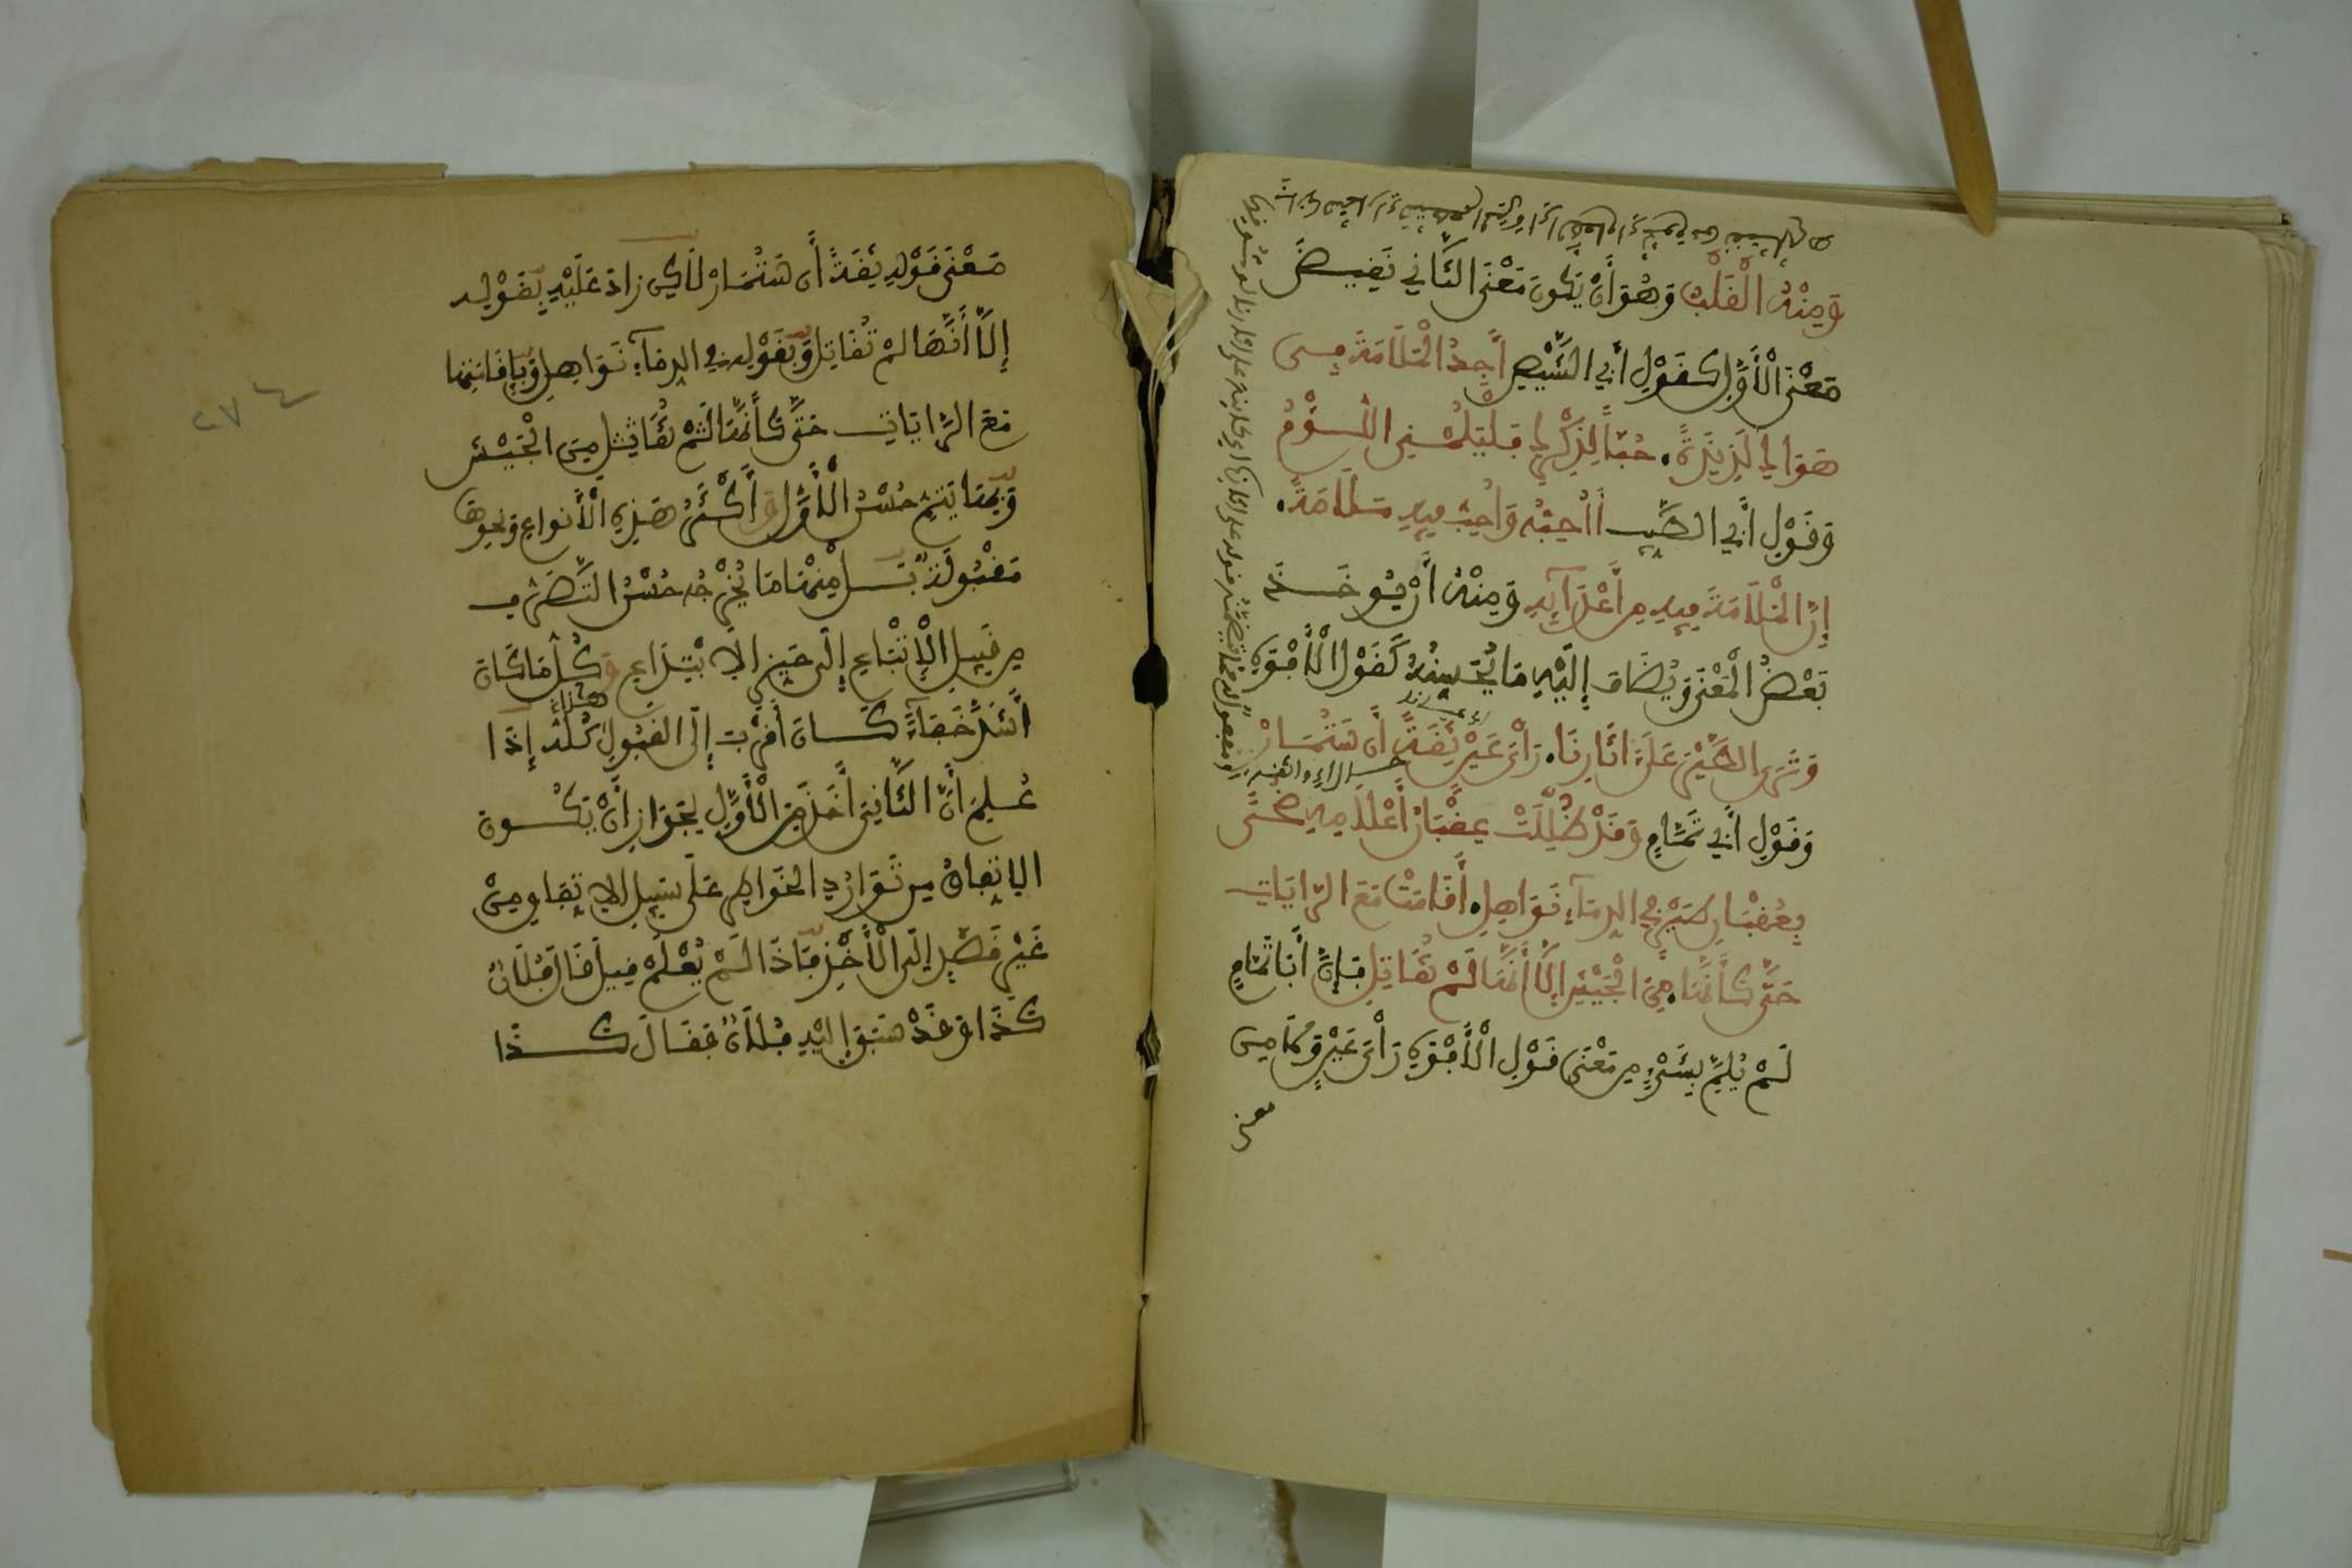 وَمِنْهُ الْقَلْبُ وَهُوَ أَنْ يَّكُونَ مَعْنَى الثَّانِي نَقِيضَ
مَعْنَى الْأَوَّلِ كَقَوْلِ أَبِي الشِّيصِ أَجِدُ الْمَلَامَةَ فِي
هَوَاكِ لَذِيذَةً حُبّاً لِذِكْرِكِ فَلْيَلُمْنِي اللُّوَّمُ
وَقَوْلِ أَبِي الطَّيِّبِ أَأُحِبُّهُ وَأُحِبُّ فِيهِ مَلَامَةً
إِنَّ الْمَلَامَةَ فِيهِ مِنْ أَعْدَآئِهِ وَمِنْهُ أَنْ يُّوخَذَ
بَعْضُ الْمَعْنَى وَيُضَافَ إِلَيْهِ مَا يُحَسِّنُهُ كَقَوْلِ الْأَفْوَهِ
وَتَرَى الطَّيْرَ عَلَى ءَاثَارِنَا رَأْيَ عَيْنٍ ثِقَةً أَن سَتُمَارْ
وَقَوْلِ أَبِي تَمَّامٍ وَقَدْ ظُلِّلَتْ عِقْبَانُ أَعْلَامِهِ ضُحًى
بِعُقْبَانِ طَيْرٍ فِي الدِّمَآءِ نَوَاهِلِ أَقَامَتْ مَعَ الرَّايَاتِ
حَتَّى كَأَنَّهَا مِنَ الْجَيْشِ إِلَّا أَنَّهَا لَمْ تُقَاتِلِ فَإِنَّ أَبَا تَمَّامٍ
لَمْ يُلِمَّ بِشَيْءٍ مِنْ مَعْنَى قَوْلِ الْأَفْوَهِ رَأْيَ عَيْنٍ وَلَا مِنْ
معنى
مَعْنَى قَوْلِهِ ثِقَةً أَن سَتُمَارْ لَكِنْ زَادَ عَلَيْهِ بِقَوْلِهِ
إِلَّا أَنَّهَا لَمْ تُقَاتِلْ وَبِقَوْلِهِ فِي الدِّمَآءِ نَوَاهِلِ وَبِإِقَامَتِهَا
مَعَ الرَّايَاتِ حَتَّى كَأَنَّهَا مِنَ الْجَيْشِ
وَبِهَا يَتِمُّ حُسْنُ الْأَوَّلِ وَأَكْثَرُ هَذِهِ الْأَنْوَاعِ وَنَحْوِهَا
مَقْبُولَةٌ بَلْ مِنْهَا مَا يُخْرِجُهُ حُسْنُ التَّصَرُّفِ
مِنْ قَبِيلِ الْإِتْبَاعِ إِلَى حَيِّزِ الِابْتِدَاعِ وَكُلُّ مَا كَانَ
أَشَدَّ خَفَآءً كَانَ أَقْرَبَ إِلَى الْقَبُولِ هذا كُلُّهُ إِذَا
عُلِمَ أَنَّ الثَّانِيَ أَخَذَ مِنَ الْأَوَّلِ لِجَوَازِ أَنْ يَّكُونَ
الِاتِّفَاقُ مِنْ تَوَارُدِ الْخَوَاطِرِ عَلَى سَبِيلِ الِاتِّفَاقِ مِنْ
غَيْرِ قَصْدٍ إِلَى الْأَخْذِ فَإِذَا لَمْ يُعْلَمْ قِيلَ قَالَ فُلَانٌ
كَذَا وَقَدْ سَبَقَ إِلَيْهِ فُلَانٌ فَقَالَ كَذَا